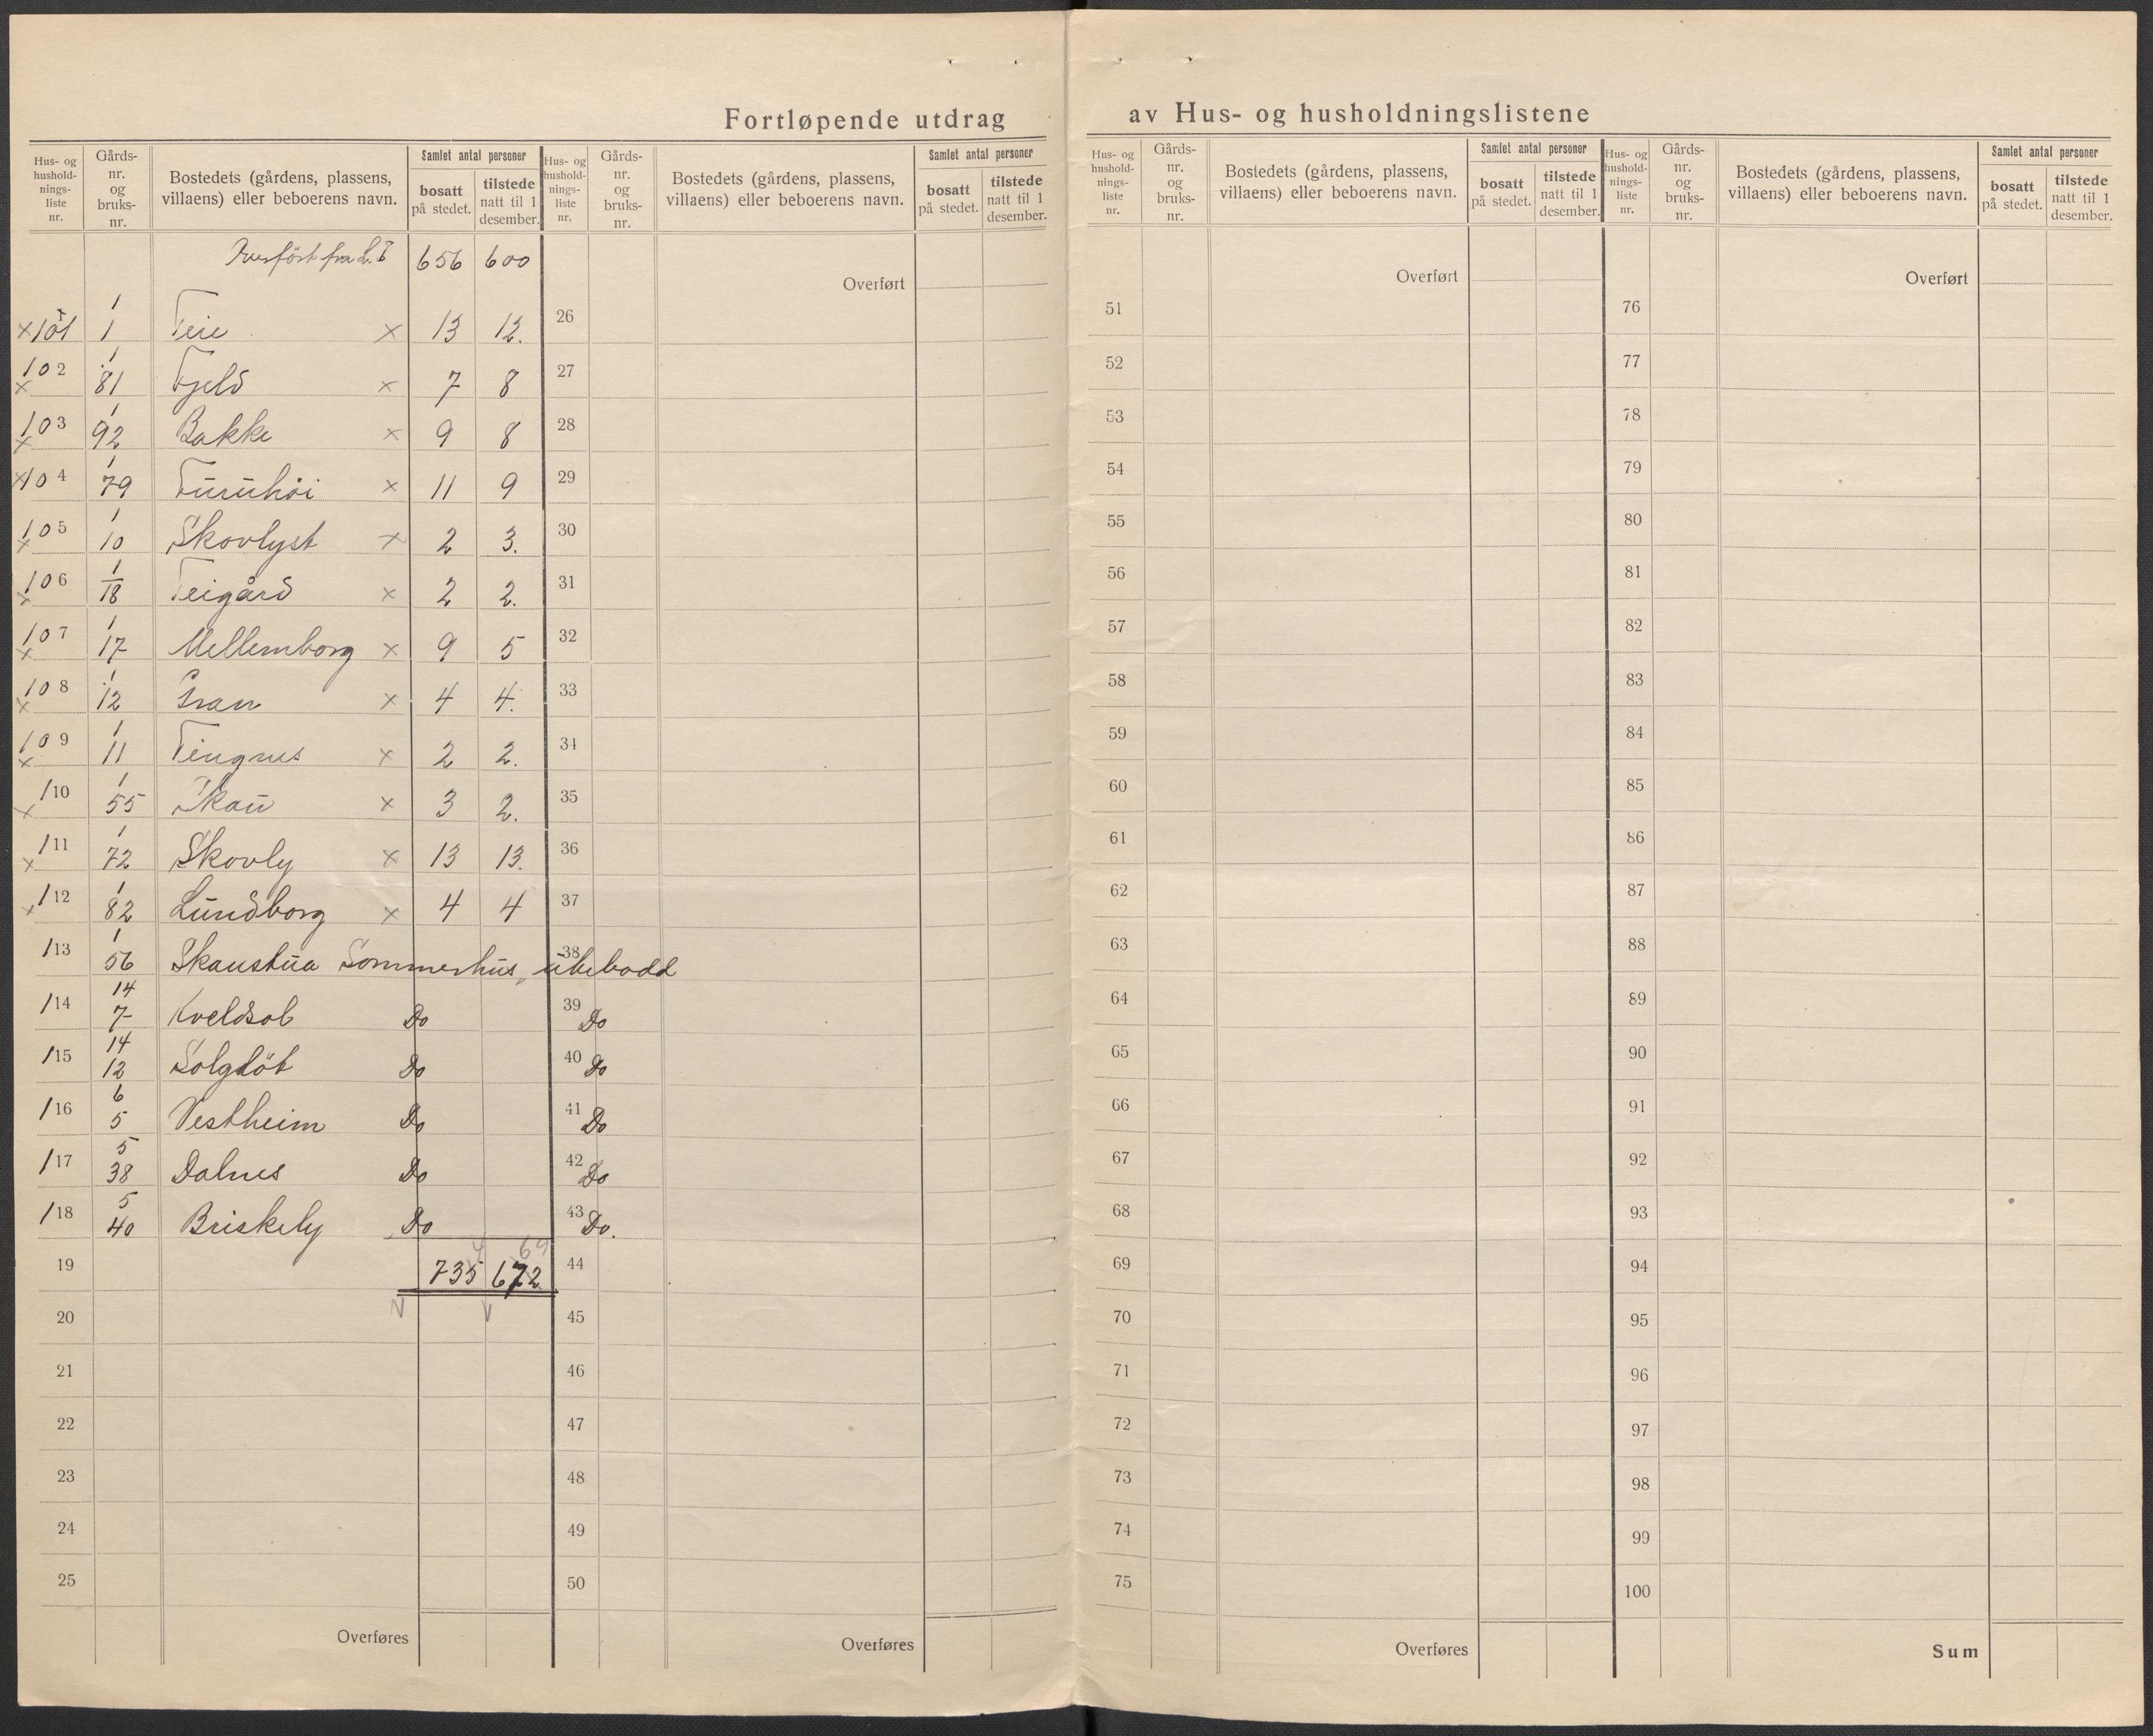 Fortløpende utdrag av Hus- og husholdningslistene
Hus- og hushold- nings- liste nr. Gårds- nr. og bruks- nr. Bostedets (gårdens, plassens, villaens) eller beboerens navn. Samlet antal personer bosatt på stedet. tilstede natt til 1 desember.
fra 656 600
×101 1/1 Teie × 13 12.
×102 1/81 Fjeld × 7 8
×103 1/92 Bakke × 9 8
×104 1/79 Furuhöi × 11 9
×105 1/10 Skovlyst × 2 3.
×106 1/18 Teigård × 2 2.
×107 1/17 Mellemborg × 9 5
×108 1/12 Gran × 4 4.
×109 1/11 × 2 2.
×110 1/55 Skau × 3 2.
×111 1/72 Skovly × 13 13.
×112 1/82 Lundborg × 4 4
113 1/56 Skaustua Sommerhus, ubebodd
114 14/7 Kveldsol Do Do
115 14/12 Solgløt Do Do
116 6/5 Vestheim Do Do
117 5/38 Dalnes Do Do
118 5/40 Briskely Do Do.
19 735 672
20
21
22
23
24
25
Overføres
Hus- og hushold- nings- liste nr. Gårds- nr. og bruks- nr. Bostedets (gårdens, plassens, villaens) eller beboerens navn. Samlet antal personer bosatt på stedet. tilstede natt til 1 desember.
Overført
26
27
28
29
30
31
32
33
34
35
36
37
38
39
40
41
42
43
44
45
46
47
48
49
50
Overføres
Hus- og hushold- nings- liste nr. Gårds- nr. og bruks- nr. Bostedets (gårdens, plassens, villaens) eller beboerens navn. Samlet antal personer bosatt på stedet. tilstede natt til 1 desember.
Overført
51
52
53
54
55
56
57
58
59
60
61
62
63
64
65
66
67
68
69
70
71
72
73
74
75
Overføres
Hus- og hushold- nings- liste nr. Gårds- nr. og bruks- nr. Bostedets (gårdens, plassens, villaens) eller beboerens navn. Samlet antal personer bosatt på stedet. tilstede natt til 1 desember.
Overført
76
77
78
79
80
81
82
83
84
85
86
87
88
89
90
91
92
93
94
95
96
97
98
99
100
Sum